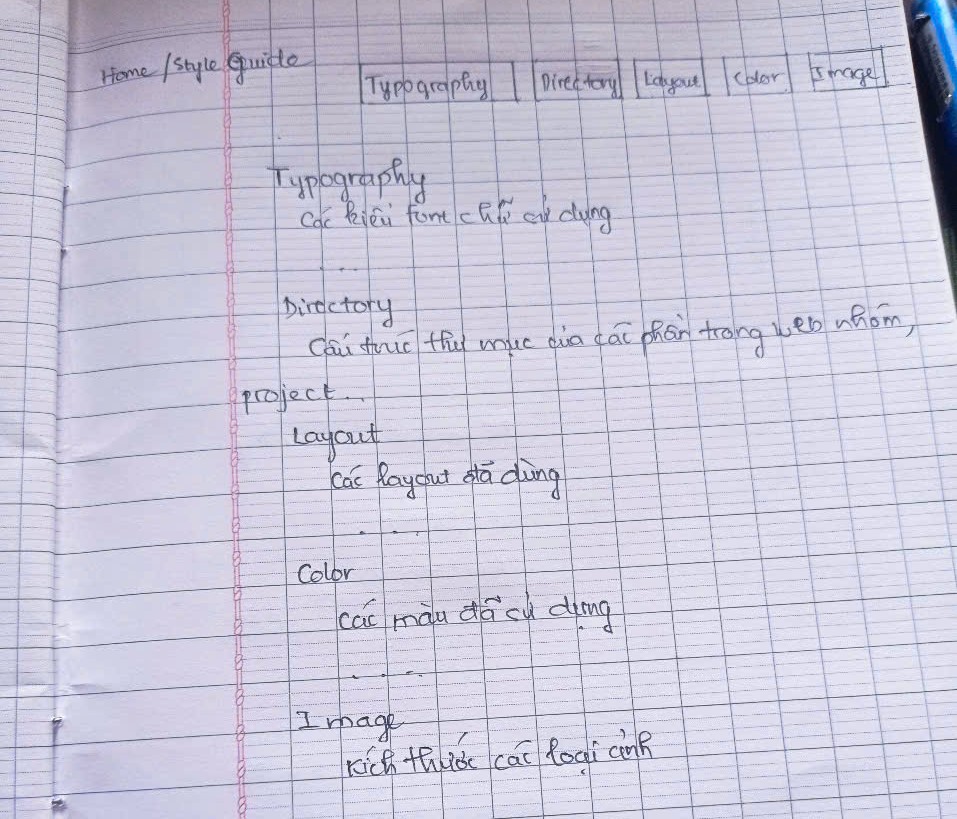 Home/Style Guide
Typography Directory Layout Color Image
Typography
Các kiểu font chữ sử dụng
...
Directory
Cấu trúc thư mục của các phần trong web nhóm,
project...
Layout
Các layout đã dùng
....
Color
các màu đã sử dụng
....
Image
Kích thước các loại ảnh